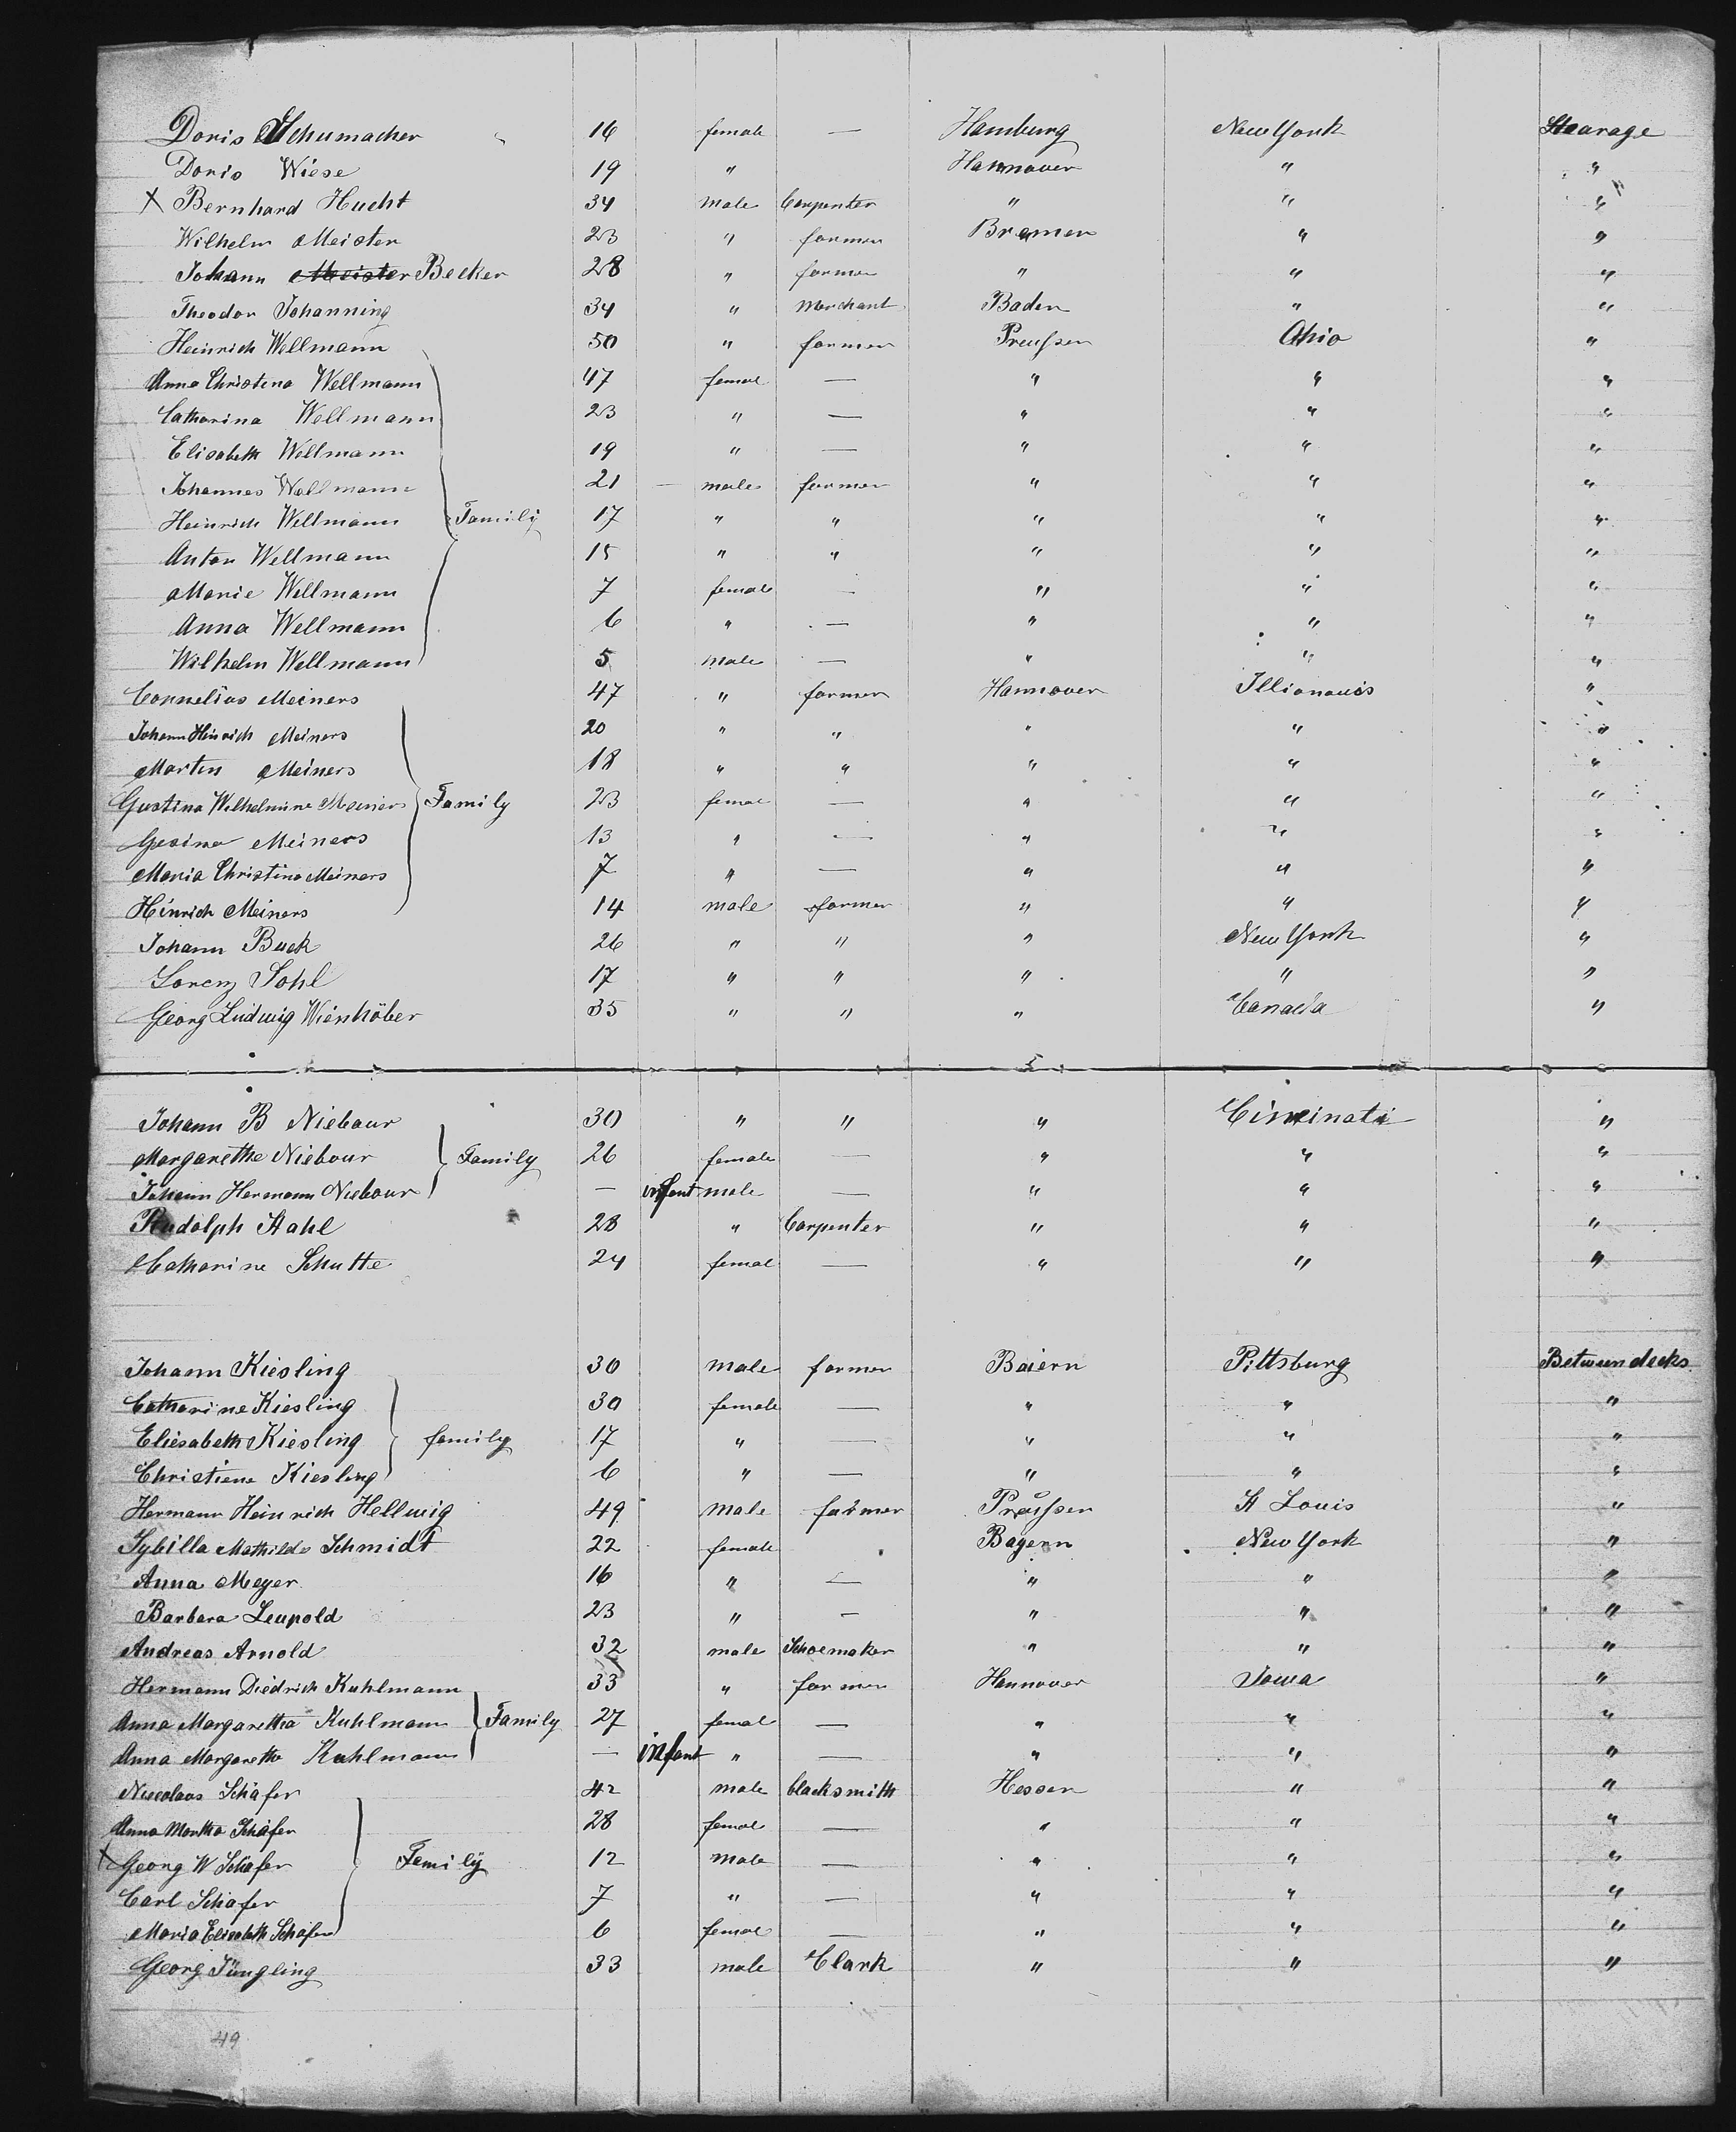 Doris Schumacher 16 female — Hamburg New York Stearage
Doris Wiese 19 " Hannover " "
X Bernhard Hucht 34 male Carpenter " " "
Wilhelm Meister 23 " farmer Bremen " "
Johann Meister Becker 28 " farmer " " "
Theodor Johanning 34 " Merchant Baden " "
Heinrich Wellmann 50 " farmer Preußen Ohio "
Anna Christina Wellmann 47 femal — " " "
Catharina Wellmann 23 " — " " "
Elisabeth Wellmann 19 " — " " "
Johannes Wellmann 21 male farmer " " "
Heinrich Wellmann Family 17 " " " " "
Anton Wellmann 15 " " " " "
Marie Wellmann 7 female — " " "
Anna Wellmann 6 " — " " "
Wilhelm Wellmann 5 male — " " "
Cornelius Meiners 47 " farmer Hannover Illionouis "
Johann Hinrich Meiners 20 " " " " "
Martin Meiners 18 " " " " "
Gustina Wilhelmine Meiners Family 23 female — " " "
Gesina Meiners 13 " — " " "
Maria Christina Meiners 7 " — " " "
Hinrich Meiners 14 male farmer " " "
Johann Buck 26 " " " New York "
Lorenz Sohl 17 " " " " "
Georg Ludwig Wienhöber 35 " " " Canada "
Johann B Niebour 30 " " " Cincinati "
Margarethe Niebour Family 26 female — " " "
Johann Hermann Niebour — infant male — " " "
Rudolph Stahl 28 " Carpenter " " "
Catharine Schutte 24 femal — " " "
Johann Kiesling 30 male farmer Baiern Pittsburg Between decks
Catharine Kiesling 30 female — " " "
Eliesabeth Kiesling family 17 " — " " "
Christiene Kiesling 6 " — " " "
Hermann Heinrich Hellwig 49 male farmer Preußen St Louis "
Sybilla Mathilde Schmidt 22 female Bayern New York "
Anna Meyer 16 " — " " "
Barbara Leupold 23 " — " " "
Andreas Arnold 32 male Schoemaker " " "
Hermann Diedrich Kuhlmann 33 " farmer Hannover Iowa "
Anna Margaretha Kuhlmann Family 27 femal — " " "
Anna Margaretha Kuhlmann — infant " — " " "
Niecolaus Schäfer 42 male blacksmith Hessen " "
Anna Martha Schäfer 28 femal — " " "
X Georg W Schäfer Family 12 male — " " "
Carl Schäfer 7 " — " " "
Maria Elisabeth Schäfer 6 female — " " "
Georg Jüngling 33 male Clark " " "
49